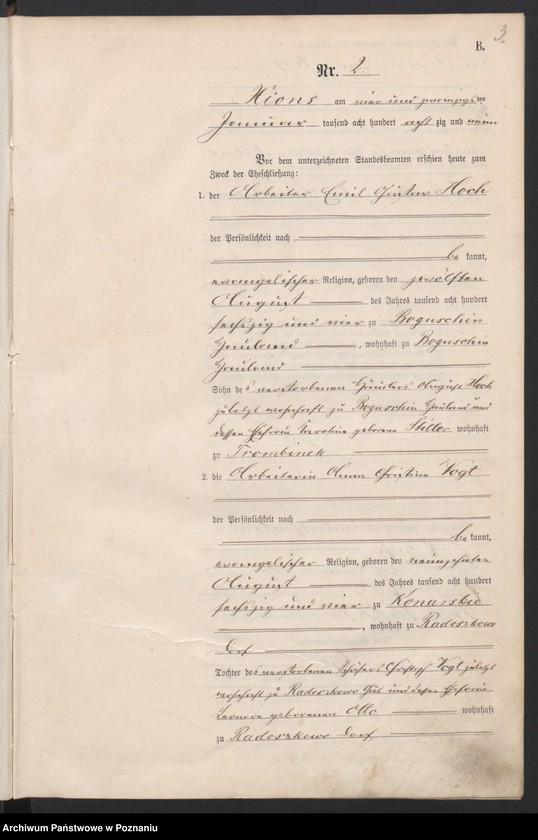 3.
B.
Nr. 2.
Xions am vier und zwanzigsten
Januar tausend acht hundert acht zig und neun
Vor dem unterzeichneten Standesbeamten erschien heute zum
Zweck der Eheschließung:
1. der Arbeiter Emil Gustav Hoch
der Persönlichkeit nach
be kannt,
evangelischer Religion, geboren den zwölften
August des Jahres tausend acht hundert
sechszig und vier zu Boguschin
Hauland, wohnhaft zu Boguschin
Hauland
Sohn des verstorbenen Häuslers August Hoch
zuletzt wohnhaft zu Boguschin Hauland und
dessen Ehefrau Karoline geborene Stiller wohnhaft
zu Trombinek
2. die Arbeiterin Anna Christine Vogt
der Persönlichkeit nach
be kannt,
evangelischer Religion, geboren den neunzehnten
August des Jahres tausend acht hundert
sechszig und vier zu Konarskie
, wohnhaft zu Radoszkowo
Dorf
Tochter des verstorbenen Schäfers Christoph Vogt zuletzt
wohnhaft zu Radoszkowo Gut und dessen Ehefrau
geborenen Otto wohnhaft
zu Radoszkowo Dorf
Archiwum Państwowe w Poznaniu